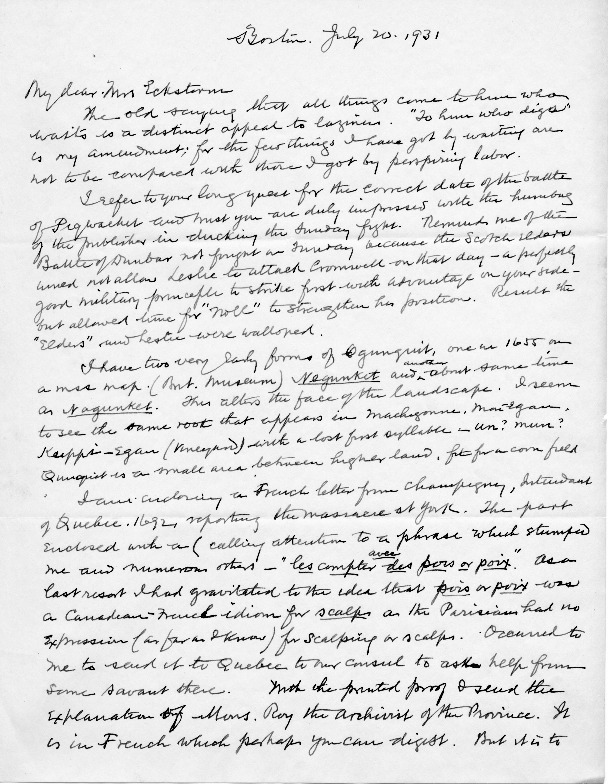 Boston. July 20. 1931
My dear Mrs Eckstorm
The old saying that all things come to him who
waits is a distinct appeal to laziness. "To him who digs"
is my amendment; for the few things I have got by waiting are
not to be compared with those I got by perspiring labor.
I refer to your long quest for the correct date of the battle
of Pigwacket and trust you are duly impressed with the humbug
of the publisher in ducking the Sunday fight. Reminds me of the
Battle of Dunbar not fought on Sunday because the Scotch elders
would not allow Leslie to attack Cromwell on that day - a perfectly
good military principle to strike first with advantage on your side -
but allowed time for "Noll" to strengthen his position. Result the
"Elders" and Leslie were walloped.
I have two very early forms of Ogunquit, one in 1655 on
a mss map. (Brit. Museum) Negunket and another about same time
as Nagunket. This alters the face of the landscape. I seem
to see the same root that appears in Machegonne, Mon Egan,
Keippi-Egan (Vineyard) - with a lost first syllable - un? mun?
Qunquit is a small area between higher land, fit for a corn field
I am enclosing a French letter from Champigny, Intendant
of Quebec. 1692, reporting the massacre at York. The part
enclosed with a ( calling attention to a phrase which stumped
me and numerous others - "les compter avec des pois or poix". As a
last resort I had gravitated to the idea that pois or poix was
a Canadian-French idiom for scalps as the Parisians had no
expression (as far as I know) for scalping or scalps. Occurred to
me to send it to Quebec to our consul to ask help from
some savant there. With the printed proof I send the
explanation of Mons. Roy the Archivist of the Province. It
is in French which perhaps you can digest. But it is to